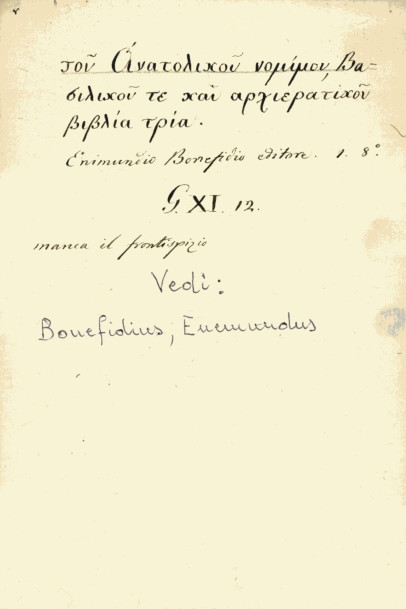 τοῦ Ἀνατολικοῦ νομίμου, Βα=
σιλικοῦ τε καὶ αρχιερατίκοῦ
βιβλία τρία.
Enimundio Bonefidio editore. 1. 8°.
G. XI. 12.
manca il frontispizio
Vedi:
Bonefidius, Enemundus